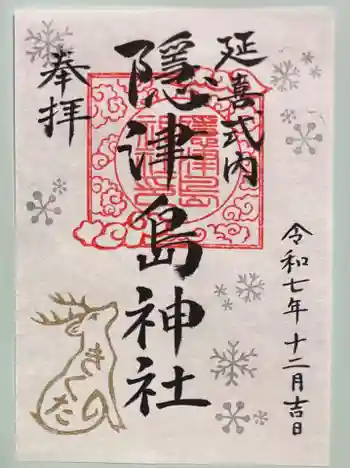 延喜式内
奉拝
隠津島神社
令和七年十二月吉日
きくた